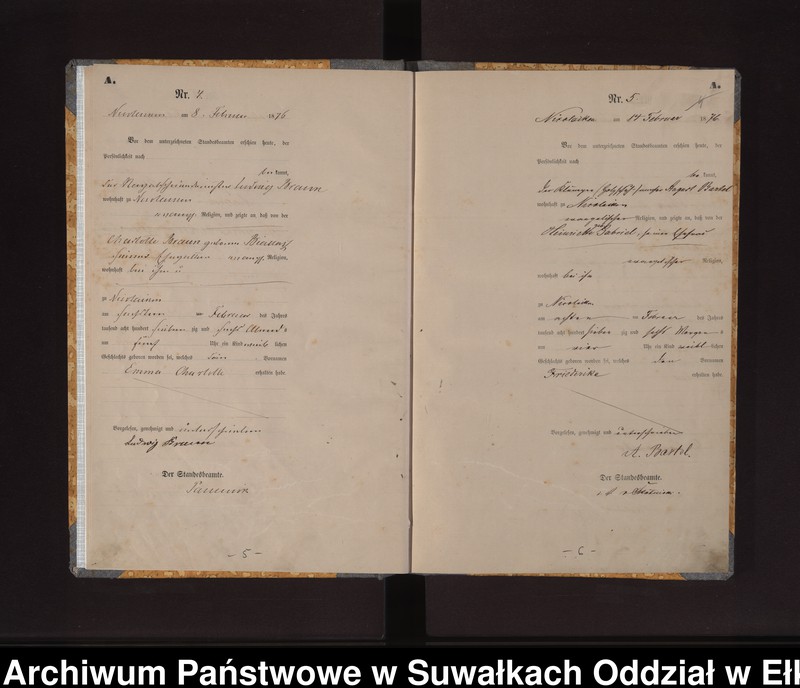 A.
Nr. 4.
am 8. Februar 1876
Vor dem unterzeichneten Standesbeamten erschien heute, der
Persönlichkeit nach
be kannt,
Ludwig Braun
wohnhaft zu
evang. Religion, und zeigte an, daß von der
Charlotte Braun geborene
Ehegattin evang. Religion,
wohnhaft bei ihm
zu
am sechsten Februar des Jahres
tausend acht hundert sieben zig und sechs Abends
um fünf Uhr ein Kind weib lichen
Geschlechts geboren worden sei, welches Vornamen
Emma Charlotte erhalten habe.
Vorgelesen, genehmigt und unterschrieben
Ludwig Braun
Der Standesbeamte.
- 5 -
A.
Nr. 5.
Nicolaiken am 14 Februar 1876
Vor dem unterzeichneten Standesbeamten erschien heute, der
Persönlichkeit nach
be kannt,
der Klempner August Bartel
wohnhaft zu Nicolaiken
evangelischer Religion, und zeigte an, daß von der
Heinriette Gabriel, seiner Ehefrau
evangelischer Religion,
wohnhaft bei ihm
zu Nicolaiken
am achten Februar des Jahres
tausend acht hundert sieben zig und sechs Morgens
um vier Uhr ein Kind weibl lichen
Geschlechts geboren worden sei, welches den Vornamen
Friederike erhalten habe.
Vorgelesen, genehmigt und unterschrieben
A. Bartel.
Der Standesbeamte.
- 6 -
Archiwum Państwowe w Suwałkach Oddział w Ełk